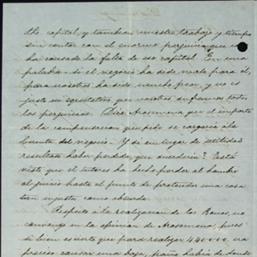 dho capital, y tambien nuestro trabajo y tiempo
sin contar con el enorme perjuicio que nos
ha causado la falta de ese capital. En una
palabra: si el negocio ha sido malo para él,
para nosotros ha sido mucho peor, y no es
justo ni equitativo que nosotros suframos todos
los perjuicios. Dice Aracemena que el importe
de la compensacion que pide se cargaria á la
cuenta del negocio. Y si en lugar de utilidad
resultase haber perdida, que sucederia? Está
visto que el interes ha hecho perder al hombre
el juicio hasta el punto de pretender una cosa
tan injusta como absurda.
Respecto á la realizacion de los Bonos, no
convengo en la opinion de Aracemena, pues
si bien es cierto que para realizar 480.000 es
preciso causar una baja, habia de